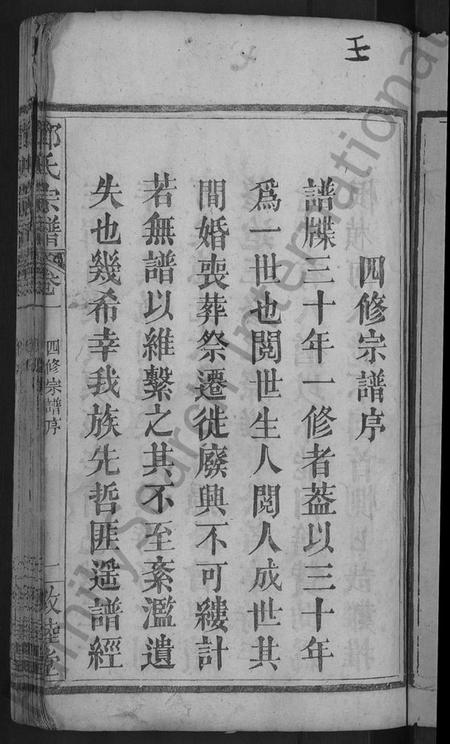 王
四修宗譜序
譜牒三十年一修者葢以三十年
爲一世也閱世生人閱人成世其
間婚喪葬祭遷徙廢興不可縷計
若無譜以維繫之其不至紊濫遺
失也幾希幸我族先哲匪遥譜經
氏宗譜
卷一
四修宗譜序
一
敦睦堂
FamilySearch International